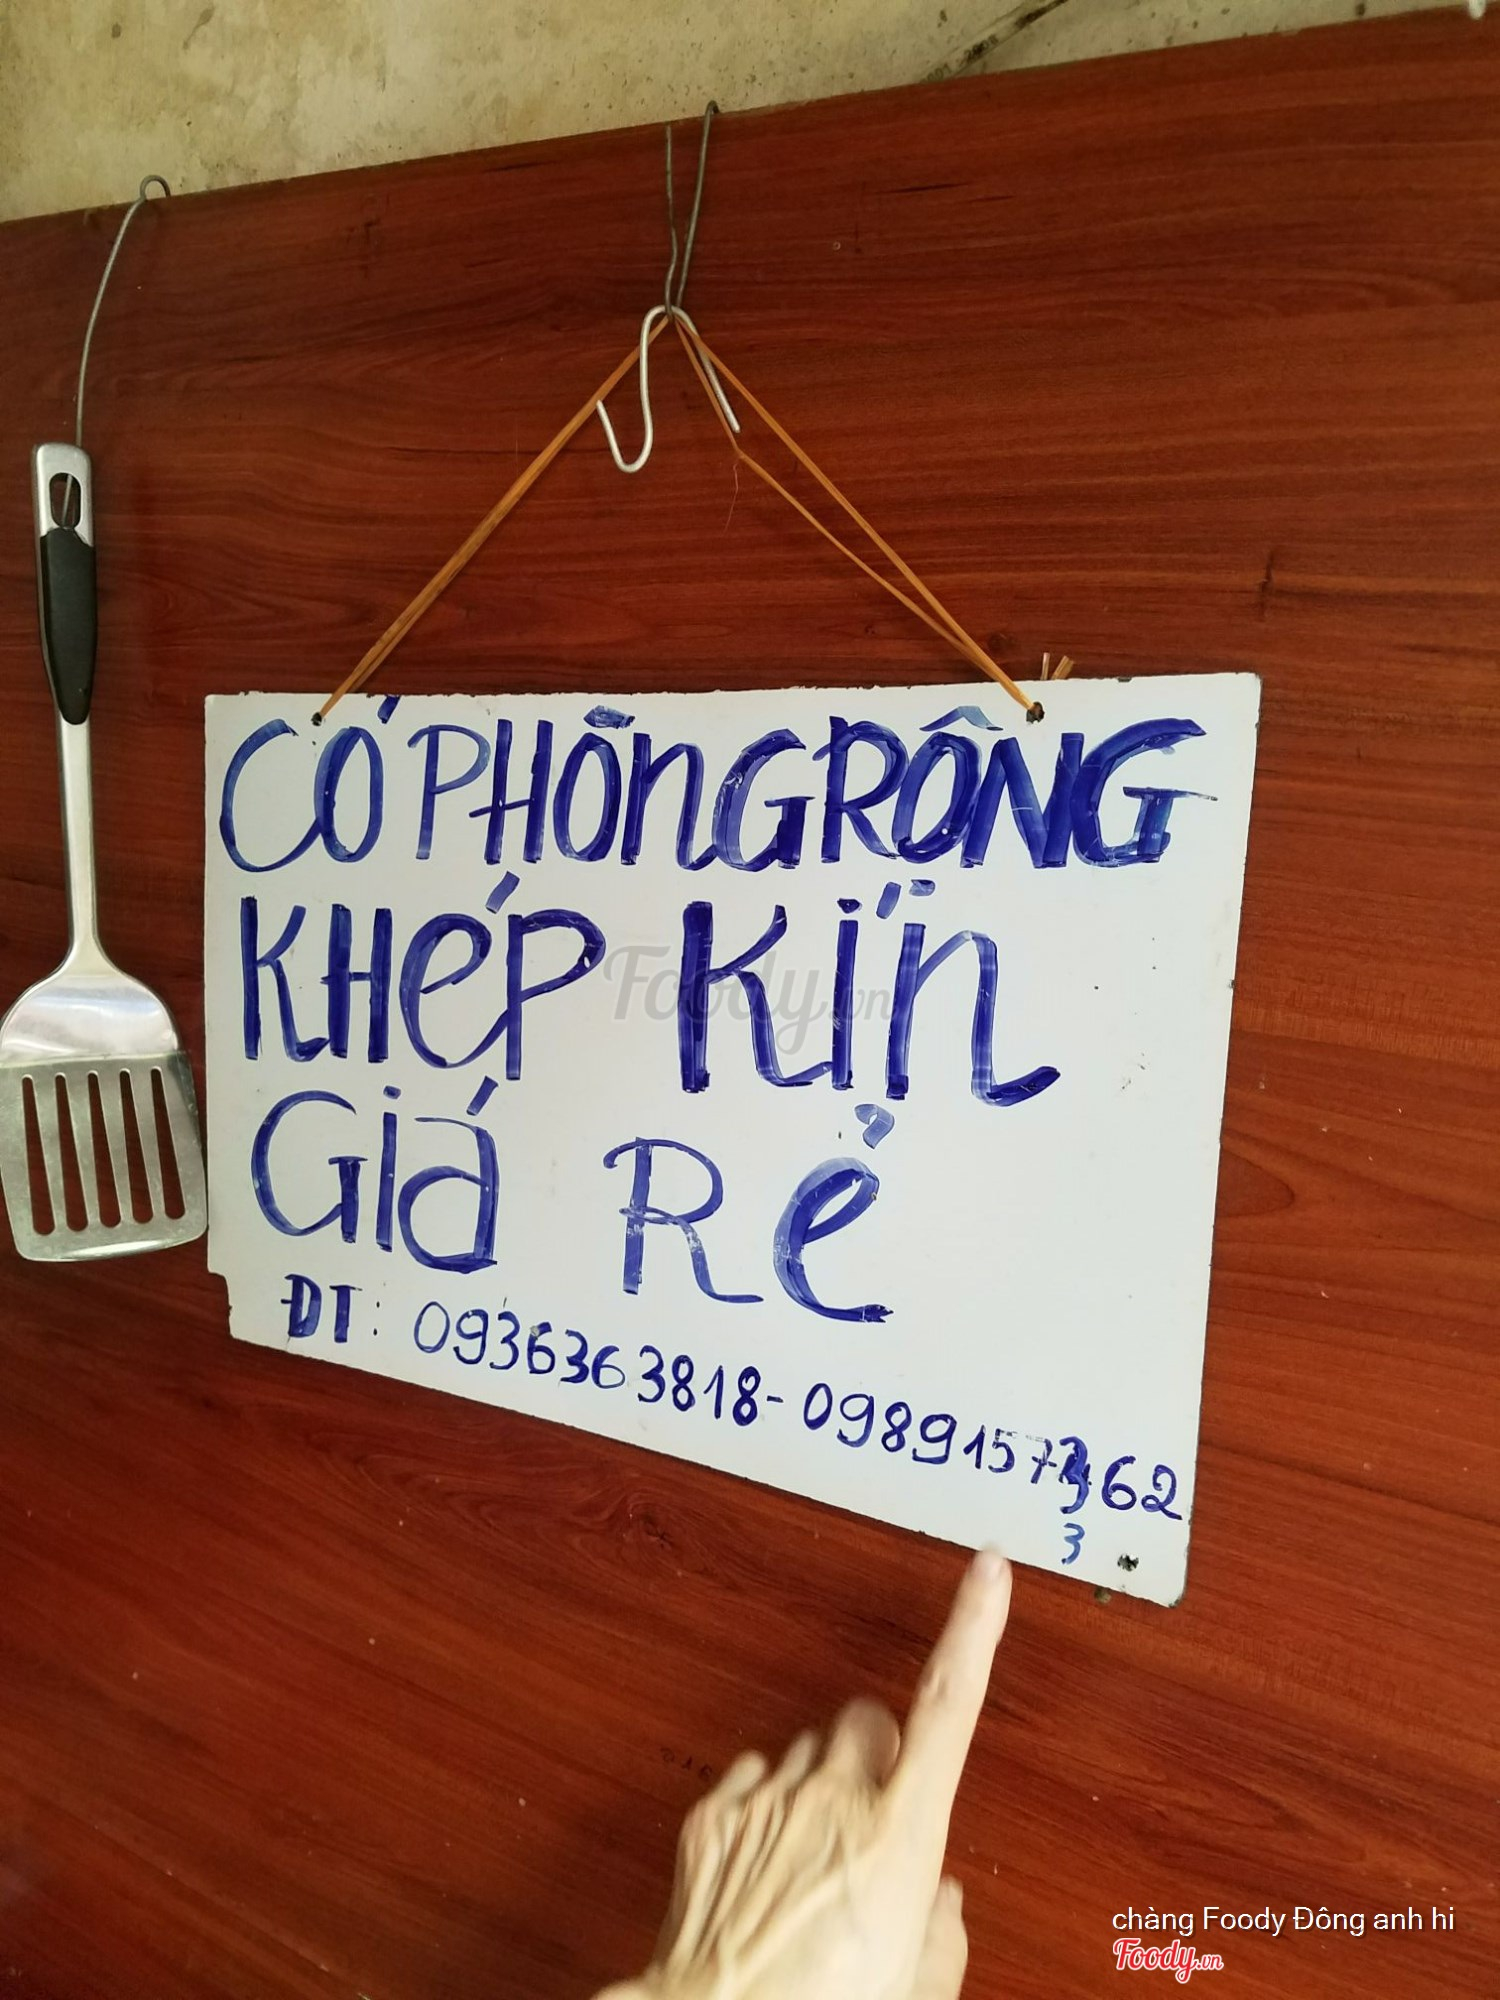 CÓ PHÒNG RỘNG
KHÉP KÍN
Giá Rẻ
ĐT: 0936363818 - 0989157362
3
Foody.vn
chàng Foody Đông anh hi
Foody.vn